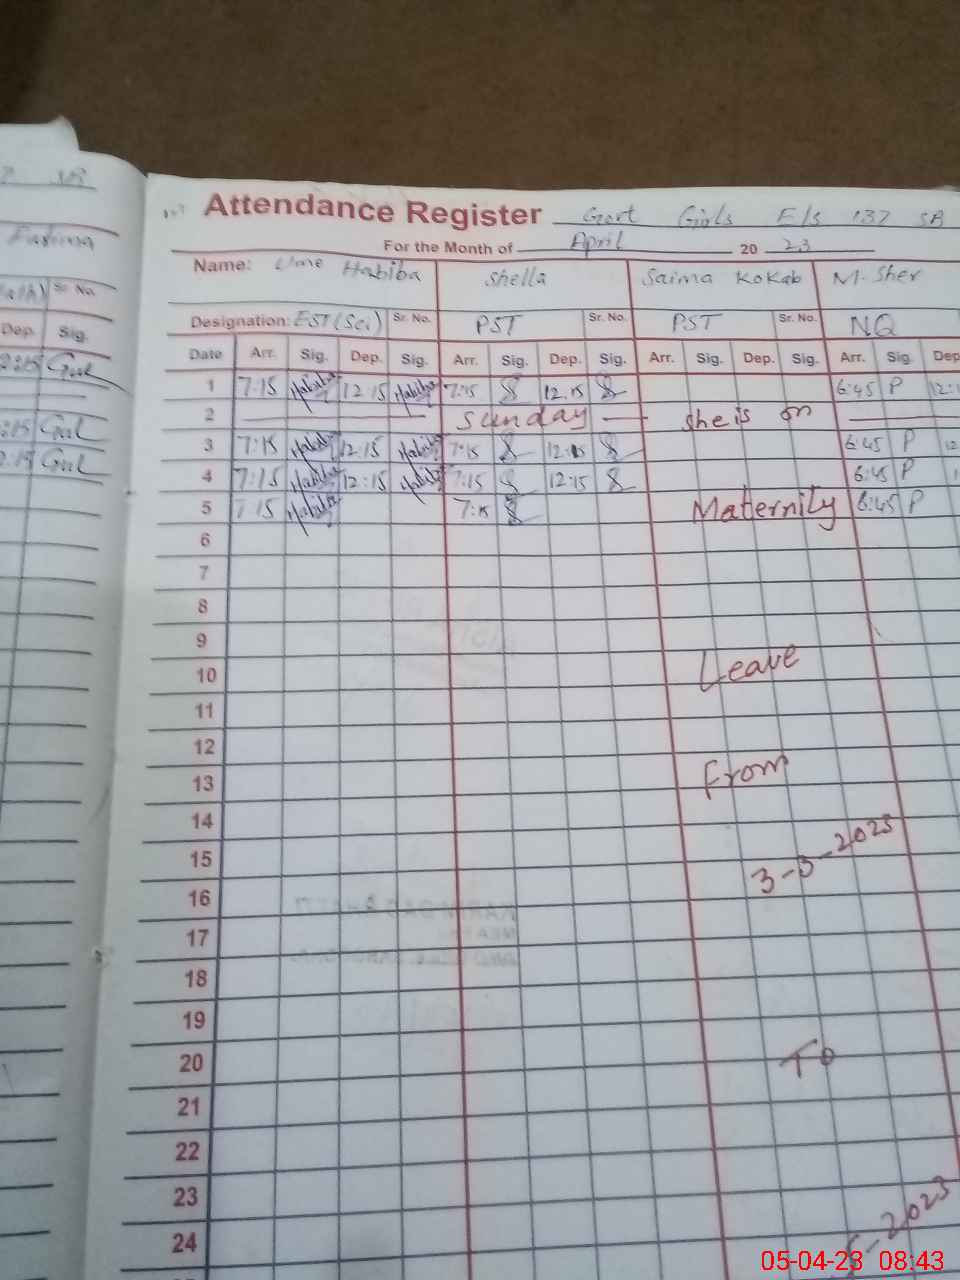 Attendance Register Govt Girls E/S 137 SB
For the Month of April 20 23
Name: Ume Habiba Shella Saima Kokab M. Sher
Designation: EST (Sci) Sr. No. PST Sr. No. PST Sr. No. NQ
Date Arr. Sig. Dep. Sig. Arr. Sig. Dep. Sig. Arr. Sig. Dep. Sig. Arr. Sig. Dep
1 7:15 Habiba 12:15 Habiba 7:15 12:15 6:45 P
2 Sunday she is on
3 7:15 Habiba 12:15 Habiba 7:15 12:15 6:45 P
4 7:15 Habiba 12:15 Habiba 7:15 12:15 6:45 P
5 7:15 Habiba 7:15 Maternity 6:45 P
6
7
8
9
10 Leave
11
12
13 From
14
15
16 3-3-2023
17
18
19
20 To
21
22
23
24 -2023
Fatima
Sr No.
Dep. Sig.
Gul
Gul
Gul
05-04-23 08:43